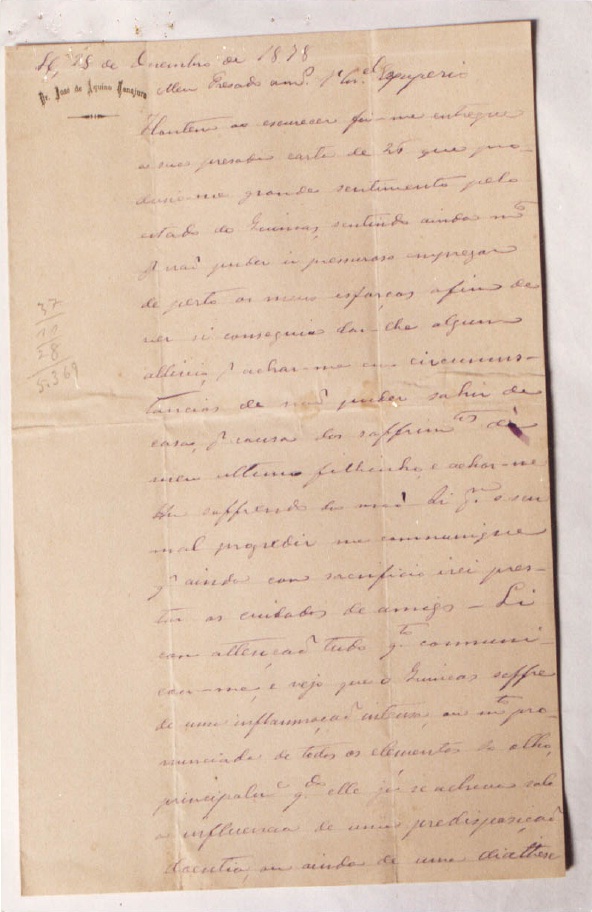 28 de Dezembro de 1878
Dr. José de Aquino Tanajura
Meu Presado am.º
Hontem ao escurecer foi-me entregue
a sua presada carta de 25 que pro-
dusio-me grande sentimento pelo
estado de sentindo ainda m.to
p.r não puder ir pressuroso empregar
de perto os meus esforços afim de
ver si conseguia dar-lhe algum
allivio, p.r achar-me em circumns-
tancias de não puder sahir de
casa, p.r causa dos soffrim.tos de
meu ultimo filhinho, e achar-me
soffrendo o seu
mal progedir me communique
q' ainda com sacrificio irei pres-
tar os cuidados de amigo - Li
com attenção tudo q.to communi-
cou-me, e vejo que o soffre
de uma inflammação intensa, ou m.to pro-
nunciada de todos os elementos do olho,
principalm.e q.do elle já se achava sob
a influencia de uma predisposição
doentia, ou ainda de uma diathese
37
11
28
5.369